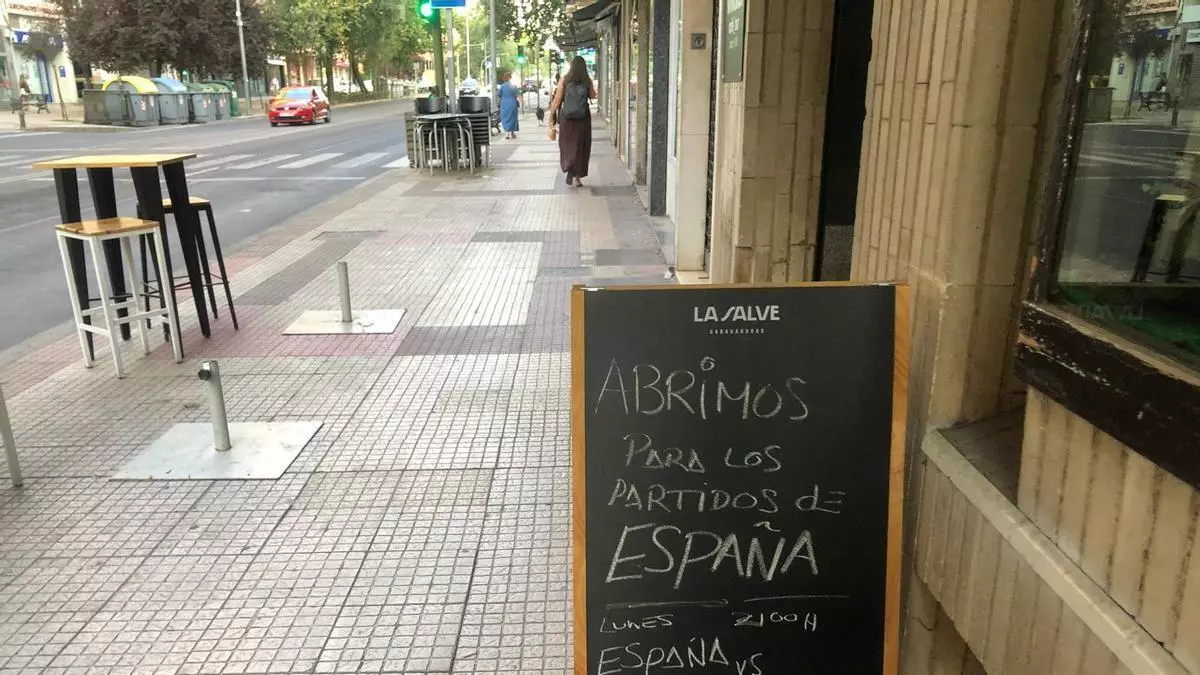 LA SALVE
ABRiMOS
PARA LOS
PARTIDOS de
ESPAÑA
LUNES 21:00 H
ESPAÑA VS